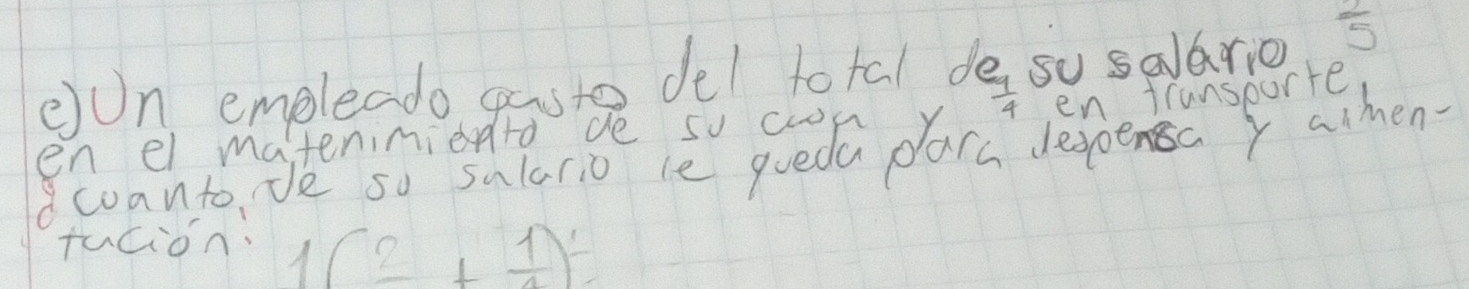 e) Un empleado gasto del total de su salario 2/5
en el matenimiento de su casa y 1/4 en transporte,
¿cuanto, de su salario le queda para despensa y aimen-
tación?
1(2 + 1/4)=